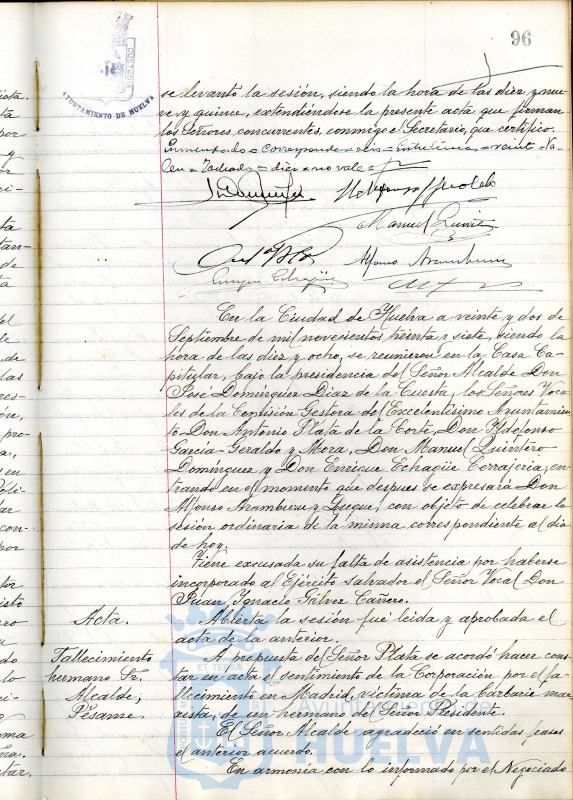 96
AYUNTAMIENTO DE HUELVA
se levantó la sesión, siendo la hora de las diez y nue
ve y quince, extendiéndose la presente acta que firman
los Señores concurrentes, conmigo el Secretario, que certifico.
Enmendado = corresponde = seis = Entrelíneas = veinte = Va-
len = Tachado = diez = no vale =
Manuel Quintero
Alfonso Aramburu
Enrique Echagüe
En la Ciudad de Huelva a veinte y dos de
Septiembre de mil novecientos treinta y siete, siendo la
hora de las diez y ocho, se reunieron en la Casa Ca-
pitular, bajo la presidencia del Señor Alcalde Don
José Domínguez Díaz de la Cuesta, los Señores Voca-
les de la Comisión Gestora del Excelentísimo Ayuntamien-
to Don Antonio Plata de la Corte, Don Ildefonso
García-Geraldo y Mora, Don Manuel Quintero
Domínguez y Don Enrique Echagüe Cerrajería, en-
trando en el momento que despues se expresará Don
Alfonso Aramburu y Luque, con objeto de celebrar la
sesión ordinaria de la misma correspondiente al día
de hoy.
Tiene excusada su falta de asistencia por haberse
incorporado al Ejército salvador el Señor Vocal Don
Juan Ignacio Gálvez Cañero.
Acta.
Abierta la sesión fué leída y aprobada el
acta de la anterior.
Fallecimiento
hermano Sr.
Alcalde;
Pésame.
A propuesta del Señor Plata se acordó hacer cons-
tar en acta el sentimiento de la Corporación por el fa-
llecimiento en Madrid, víctima de la barbarie mar-
xista, de un hermano del Señor Presidente.
El Señor Alcalde agradeció en sentidas frases
el anterior acuerdo.
En armonía con lo informado por el Negociado
Ayuntamiento de
HUELVA